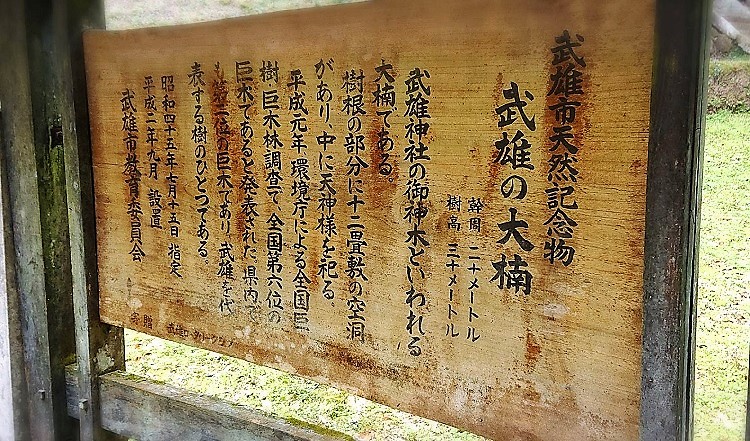 武雄市天然記念物
武雄の大楠
幹周 二十メートル
樹高 三十メートル
武雄神社の御神木といわれる
大楠である。
樹根の部分に十二畳敷の空洞
があり、中に天神様を祀る。
平成元年環境庁による全国巨
樹巨木林調査で、全国第六位の
巨木であると発表された。県内で
も第二位の巨木であり、武雄を代
表する樹のひとつである。
昭和四十五年七月十五日 指定
平成二年九月 設置
武雄市教育委員会
寄贈